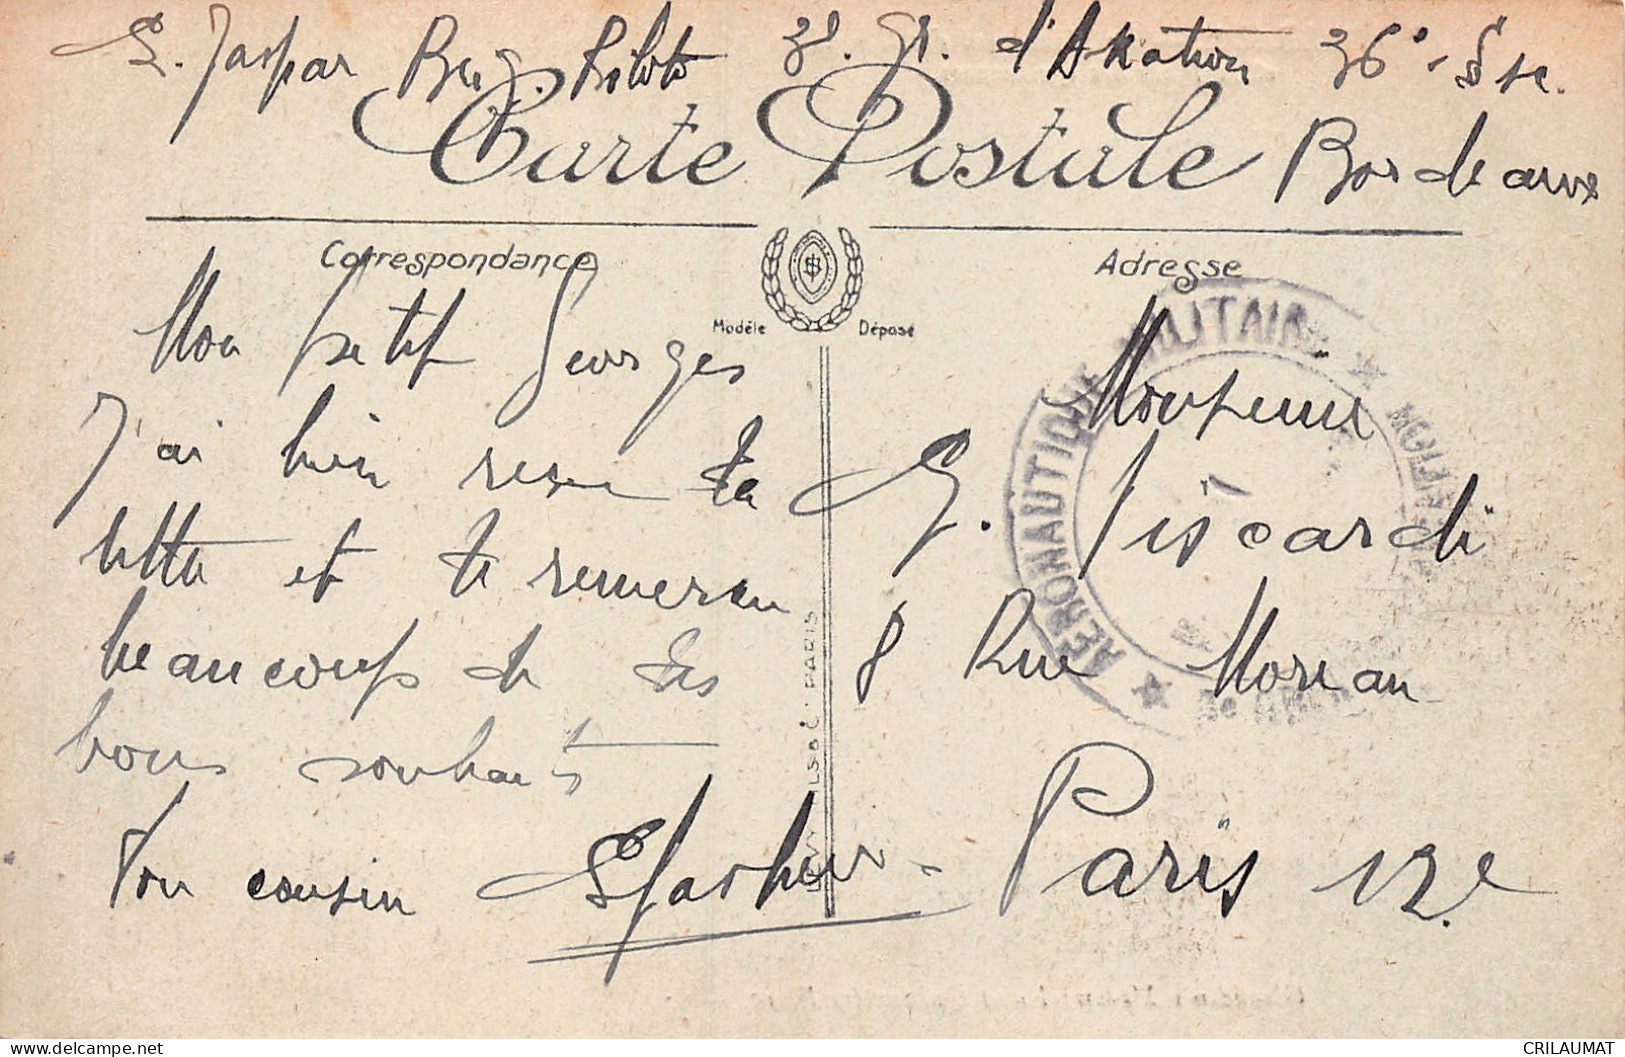 E. Jaspar Brig. Pilote 3e. Gr. d'Aviation 36e
Bordeaux
Carte Postale
Correspondance
Adresse
Modèle Déposé
Mon petit Georges
J'ai bien reçu ta
lettre et te remercie
beaucoup de tes
bons souhaits
Ton cousin
Monsieur
G. Viscardi
8 Rue Moreau
Paris 12e
AERONAUTIQUE MILITAIRE
PARIS
CRILAUMAT